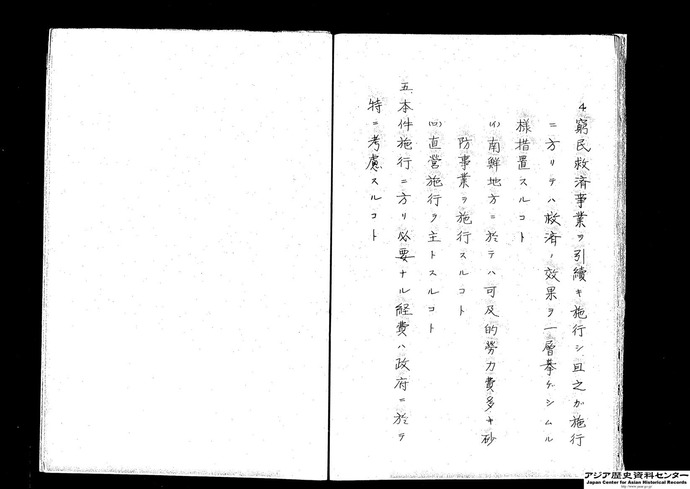 4.窮民救済事業ヲ引続キ施行シ且之ガ施行
ニ方リテハ救済ノ効果ヲ一層挙ゲシムル
様措置スルコト
(イ)南鮮地方ニ於テハ可及的労力費多キ砂
防事業ヲ施行スルコト
(ロ)直営施行ヲ主トスルコト
五、本件施行ニ方リ必要ナル経費ハ政府ニ於テ
特ニ考慮スルコト
アジア歴史資料センター
Japan Center for Asian Historical Records